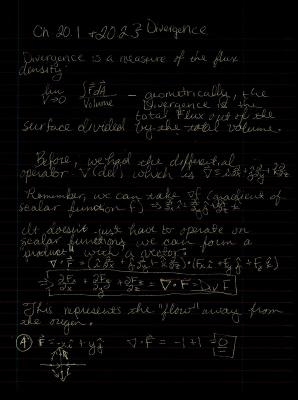 Ch. 20.1 + 20.2 Divergence
Divergence is a measure of the flux
density:
lim V→0 ∫F⃗·dA⃗ / Volume – geometrically, the
Divergence is the
total flux out of the
surface divided by the total volume.
Before, we had the differential
operator ∇ (del) which is ∇ = î∂/∂x + ĵ∂/∂y + k̂∂/∂z
Remember, we can take ∇f (gradient of
scalar function f) ⇒
It doesn't just have to operate on
scalar functions, we can form a
"product" with a vector:
∇·F⃗ = (î∂/∂x + ĵ∂/∂y + k̂∂/∂z)·(Fxî + Fyĵ + Fzk̂)
⇒ ∂Fx/∂x + ∂Fy/∂y + ∂Fz/∂z = ∇·F⃗ = Div F
This represents the "flow" away from
the origin.
④ F⃗ = -xî + yĵ ∇·F⃗ = -1+1 = 0